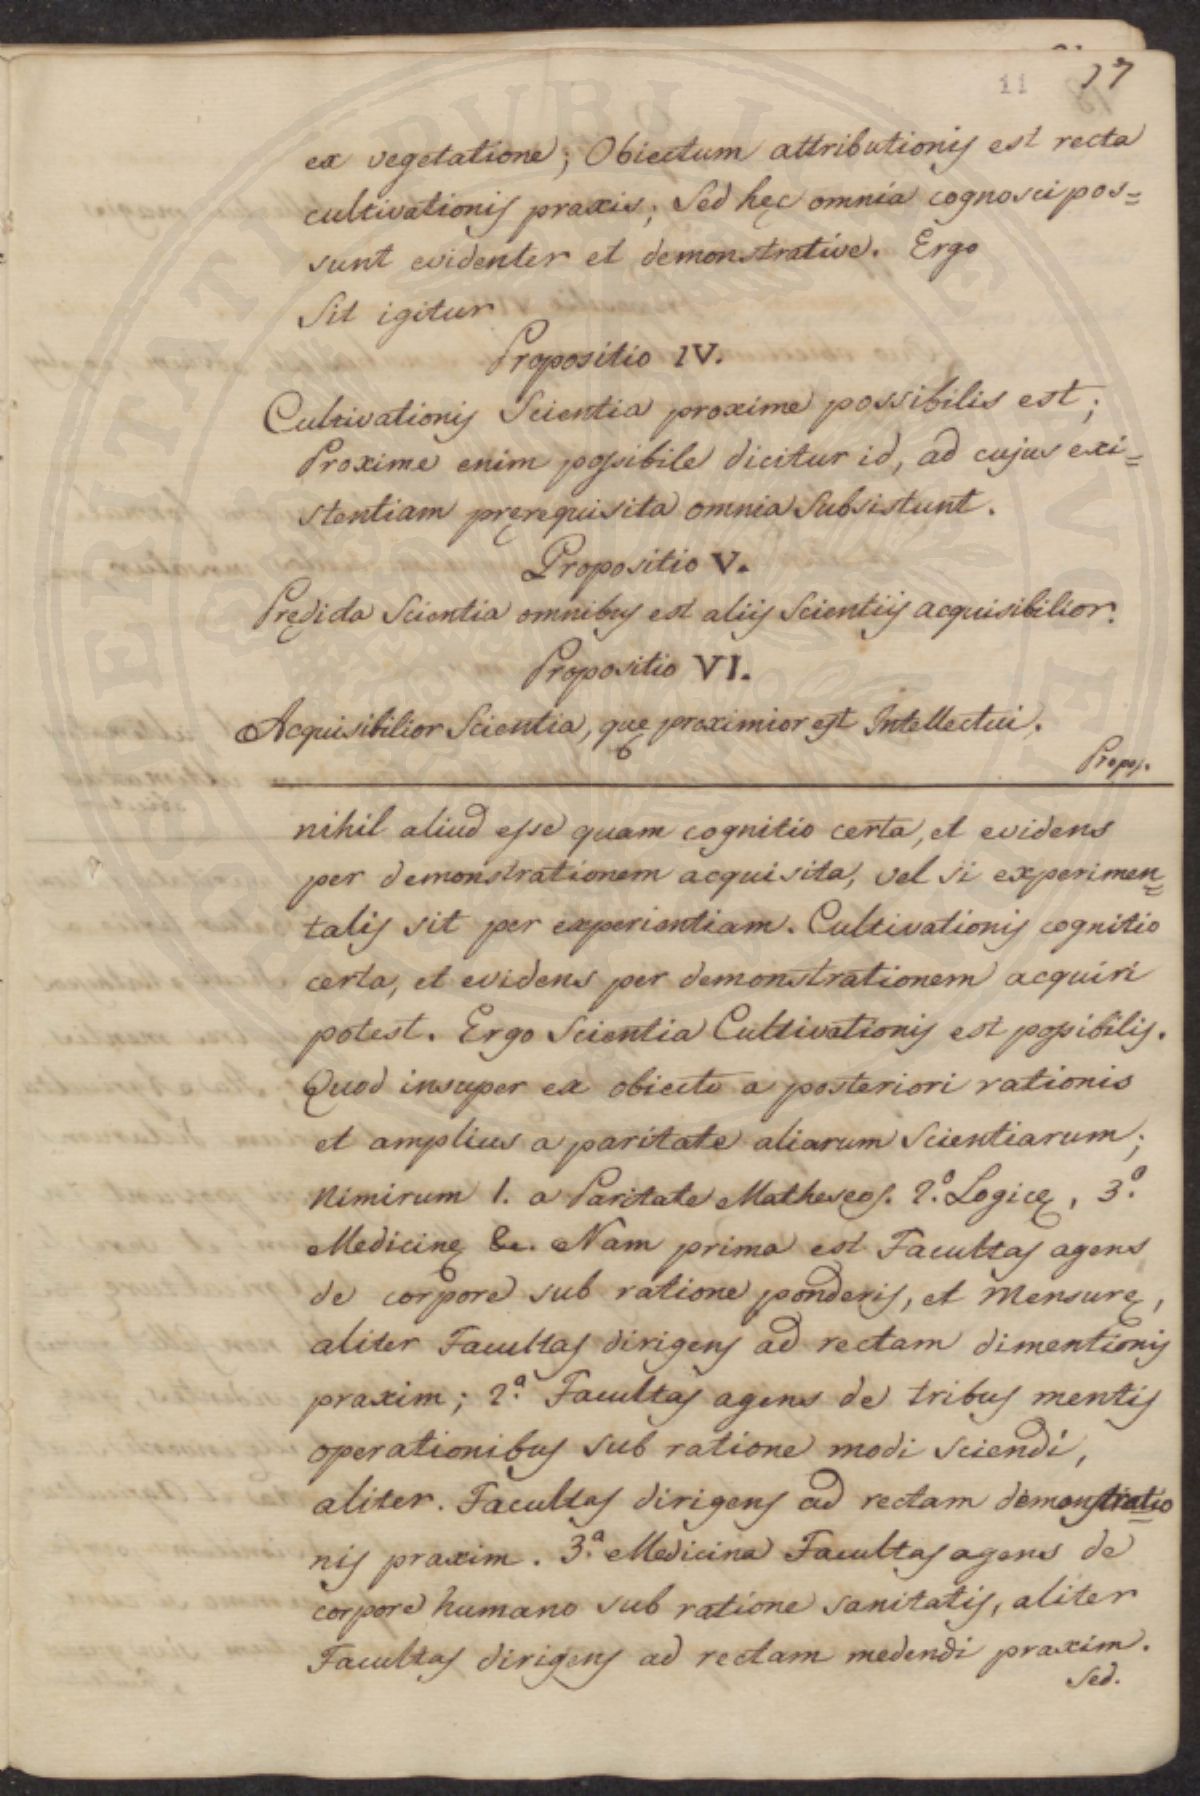 11 17
ex vegetatione; Obiectum attributionis est recta
cultivationis praxis; Sed hęc omnia cognosci pos=
sunt evidenter et demonstrative. Ergo
Sit igitur
Propositio IV.
Cultivationis Scientia proxime possibilis est;
Proxime enim possibile dicitur id, ad cujus exi=
stentiam pręrequisita omnia Subsistunt.
Propositio V.
Pręd͠i͠c͠ta Scientia omnibus est aliis Scientiis acquisibilior.
Propositio VI.
Acquisibilior Scientia, quę proximior est Intellectui.
Propos.
nihil aliud esse quam cognitio certa, et evidens
per demonstrationem acquisita, vel si experimen=
talis sit per experientiam. Cultivationis cognitio
certa, et evidens per demonstrationem acquiri
potest. Ergo Scientia Cultivationis est possibilis.
Quod insuper ex obiecto a posteriori rationis
et amplius a paritate aliarum Scientiarum;
Nimirum 1. a Paritate Matheseos. 2.º Logicę, 3.º
Medicinę &c. Nam prima est Facultas agens
de corpore sub ratione ponderis, et Mensurę,
aliter Facultas dirigens ad rectam dimentionis
praxim; 2.ª Facultas agens de tribus mentis
operationibus sub ratione modi sciendi,
aliter. Facultas dirigens ad rectam demonstratio
nis praxim. 3.ª Medicina Facultas agens de
corpore humano sub ratione sanitatis, aliter
Facultas dirigens ad rectam medendi praxim.
Sed.